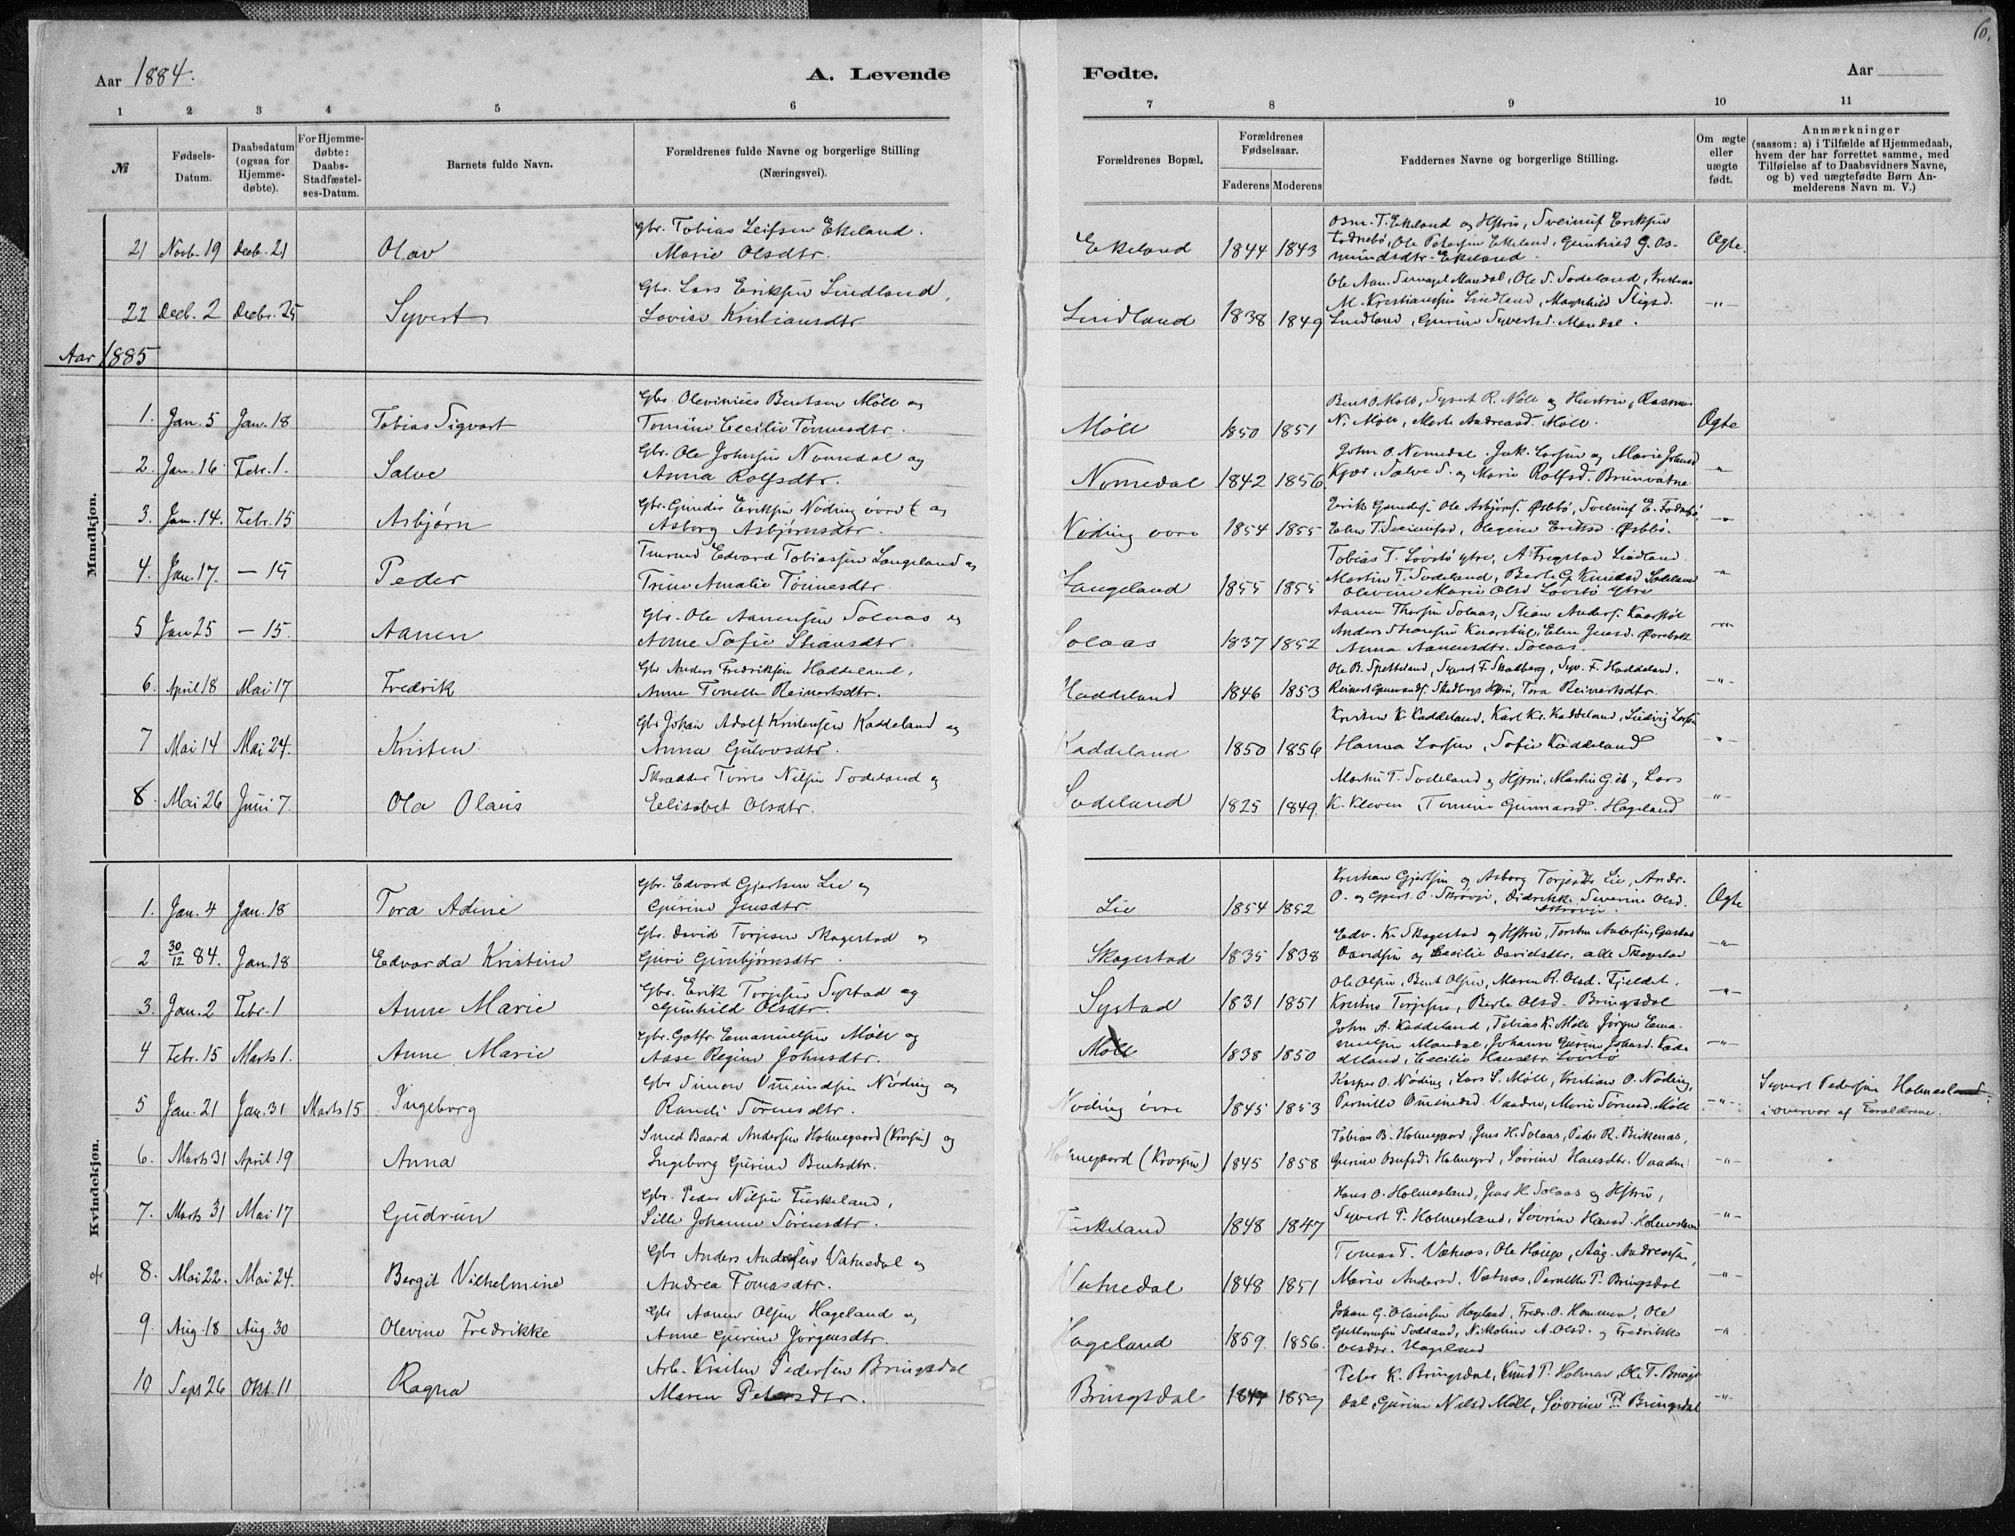 6.
Aar 1884.
A. Levende
Fødte.
Aar
1 2 3 4 5 6 7 8 9 10 11
№
Fødsels-Datum.
Daabsdatum (ogsaa for Hjemmedøbte).
For Hjemmedøbte: Daabs-Stadfæstelses-Datum.
Barnets fulde Navn.
Forældrenes fulde Navne og borgerlige Stilling (Næringsvei).
Forældrenes Bopæl.
Forældrenes Fødselsaar.
Faderens Moderens
Faddernes Navne og borgerlige Stilling.
Om ægte eller uægte født.
Anmærkninger
(saasom: a) i Tilfælde af Hjemmedaab, hvem der har forrettet samme, med Tilføielse af to Daabsvidners Navne, og b) ved uægtefødte Børn Anmelderens Navn m. V.)
21 Novb. 19 Decb. 21 Olav
Gbr. Tobias Leifsen Ekeland.
Marie Olsdtr.
Ekeland 1844 1843
Osm. T. Ekeland og Hstru, Sveinuf Eriksen
Fodnebø, Ole Petersen Ekeland, Gunhild G. Os-
mundsdtr. Ekeland.
Ægte
22 Decb. 2 Decbr. 25 Syvert
Gbr. Lars Eriksen Lindland,
Lovise Kristiansdtr.
Lindland 1838 1849
M. Kristiansen Lindland, Magnhild Sligsd.
Lindland, Gurine Syvertsd. Mandal.
-"-
Aar 1885
Mandkjøn.
1. Jan. 5 Jan. 18 Tobias Sigvart
Gbr. Olevinius Bentsen Møll og
Tomine Cecilie Tønnesdtr.
Møll 1850 1851
Bent O. Møll, Syvert R. Møll og Hustru, Rasmus
N. Møll, Marte Andreasd. Møll.
Ægte
2. Jan. 16. Febr. 1. Salve
Gbr. Ole Johnsen Nomedal og
Anna Rolfsdtr.
Nomedal 1842 1856
John O. Nomedal, Jak. Larsen og Marie Johnsd
Kjær, Salve S. og Marie Rolfsd. Brunvatne
"
3. Jan. 14. Febr. 15 Asbjørn
Gbr. Gunder Eriksen Nøding øvre og
Asborg Asbjørnsdtr.
Nøding øvre 1854 1855
Erik Gundersen Ole Asbjørns. Øsbbø, Sveinuf E. Fodnebø,
-"-
4. Jan. 17. — 15 Peder
Tmrmd Edvard Tobiassen Langeland og
Trine Amalie Tønnesdtr.
Langeland 1855 1855
Tobias T. Løvstø ytre, A. Frigstad Lindland
Martin T. Sodeland, Berte G. Knudsd Sodeland
Olevine Marie Olsd Løvstø Ytre
"
5 Jan 25 — 15. Aanen
Gbr. Ole Aanensen Solaas og
Anne Sofie Stiansdtr.
Solaas 1837 1852
Aanen Thorsen Solaas, Stian Anders. Kaarstøl
Anna Aanensdtr. Solaas.
-"-
6. April 18 Mai 17 Fredrik
Gbr Anders Fredriksen Haddeland,
Anne Tonette Reinertsdtr.
Haddeland 1846 1853
Ole B. Spetteland, Syvert F. Skadberg, Syv. F. Haddeland,
Reinert Gunvaldsen Skadbergs Hstru, Tora Reinertsdtr.
-"-
7 Mai 14 Mai 24. Kristen
Gbr Johan Adolf Kristensen Kaddeland og
Anna Gulovsdtr.
Kaddeland 1850 1856
Kristen K. Kaddeland, Karl Kr. Kaddeland, Ludvig Larsen
Hanna Larsen, Sofie Kaddeland
"
8. Mai 26 Juni 7. Ola Olaus
Skrædder Tørres Nilsen Sodeland og
Eelisabet Olsdtr.
Sodeland 1825 1849.
Martin T. Sodeland og Hstru, Martin Gib., Lars
K. Kleven, Tomine Gunnarsd. Hageland
-"-
Kvindekjøn.
1. Jan. 4 Jan. 18 Tora Adine
Gbr. Edvard Gjertsen Lie og
Gurine Jensdtr.
Lie 1854 1852
Kristian Gjertsen og Asborg Torjesdtr Lie, Andr.
O. og Gjert O. Skrøvje, Didrikke Severine Olsd.
Skrøvje.
Ægte
2 30/12 84. Jan. 18 Edvarda Kristine
Gbr. David Torjesen Skagestad og
Guri Gunbjørnsdtr.
Skagestad 1835 1838
Edv. K. Skagestad og Hstru, Torsten Andersen, Gustav
Davidsen og Cecilie Davidsdtr. alle Skagestad
-"-
3. Jan. 2 Febr. 1 Anne Marie
Gbr. Erik Torjesen Systad og
Gunhild Olsdtr.
Systad 1831 1851
Ole Olsen, Bent Olsen, Maren R. Olsd. Fjeldet,
Kristen Torjesen, Berte Olsd. Bringsdal
-"-
4 Febr. 15 Marts 1. Anne Marie
Gbr. Gotfr. Emanuelsen Møll og
Aase Regine Johnsdtr.
Møll 1838 1850
John A. Kaddeland, Tobias K. Møll Jørgen Ema-
nuelsen Mandal, Johanne Gurine Johnsd. Kad-
deland, Cecilie Hansdtr. Løvstø
-"-
5 Jan. 21 Jan. 31 Marts 15 Ingeborg
Gbr Simon Omundsen Nøding og
Randi Tørresdtr.
Nøding øvre 1845 1853
Kasper O. Nøding, Lars S. Møll, Kristian O. Nøding,
Pernille Omundsd. Vaadne, Marie Tørresd. Møll
-"-
Syvert Pedersen Holmesland
i overvær af Forældrene.
6. Marts 31 April 19 Anna
Smed Baard Andersen Holmegaard (Krossen) og
Ingeborg Gurine Bentsdtr.
Holmegaard (Krossen) 1845 1858
Tobias B. Holmegaard, Jens H. Solaas, Peder R. Birkenes,
Gurine Osufsd. Holmegrd, Sørine Hansdtr. Vaadne
-"-
7. Marts 31 Mai 17 Gudrun
Gbr. Peder Nilsen Fuskeland,
Sille Johanne Sørensdtr.
Fuskeland 1848 1847
Hans O. Holmesland, Jens H. Solaas og Hstru,
Syvert P. Holmesland, Sørine Hansd. Holmesland
-"-
8. Mai 22. Mai 24. Bergit Vilhelmine
Gbr Anders Andersen Vatnedal og
Andrea Tomasdtr.
Vatnedal 1848 1851
Tomas T. Vatnas, Ole Houge, Aug. Andreassen,
Marie Andersd. Vatnas, Pernille P. Bringsdal
-"-
9. Aug. 18 Aug. 30 Olevine Fredrikke
Gbr Aanen Olsen Hageland og
Anne Gurine Jørgensdtr.
Hageland 1859. 1856.
Johan G. Olaussen Hageland, Fredr. O. Hommen, Ole
Guttormsen Sodland, Nikoline A. Olsd. og Fredrikke
Olsdtr. Hageland
-"
10 Sept 26 Okt. 11 Ragna
Arb. Kristen Pedersen Bringsdal
Maren Petersdtr.
Bringsdal 1847 1859
Peter K. Bringsdal, Knud P. Holman, Ole T. Brings-
dal, Gurine Nilsd Møll, Sørine P. Bringsdal
-"-